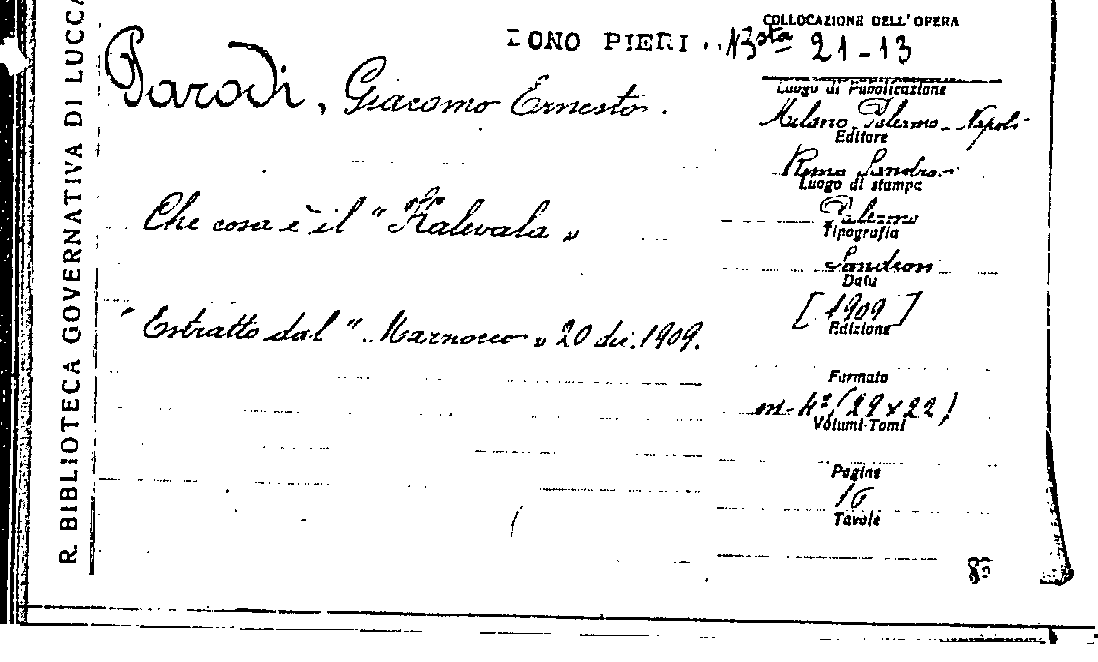 R. BIBLIOTECA GOVERNATIVA DI LUCCA
COLLOCAZIONE DELL'OPERA
DONO PIERI .. B.sta 21-13
Parodi, Giacomo Ernesto.
Che cosa è il "Kalevala"
Estratto dal "Marzocco" 20 dic. 1909.
Luogo di Pubblicazione
Milano-Palermo-Napoli
Editore
Remo Sandron
Luogo di stampa
Palermo
Tipografia
Sandron
Data
[1909]
Edizione
Formato
in-4º (29x22)
Volumi-Tomi
Pagine
16
Tavole